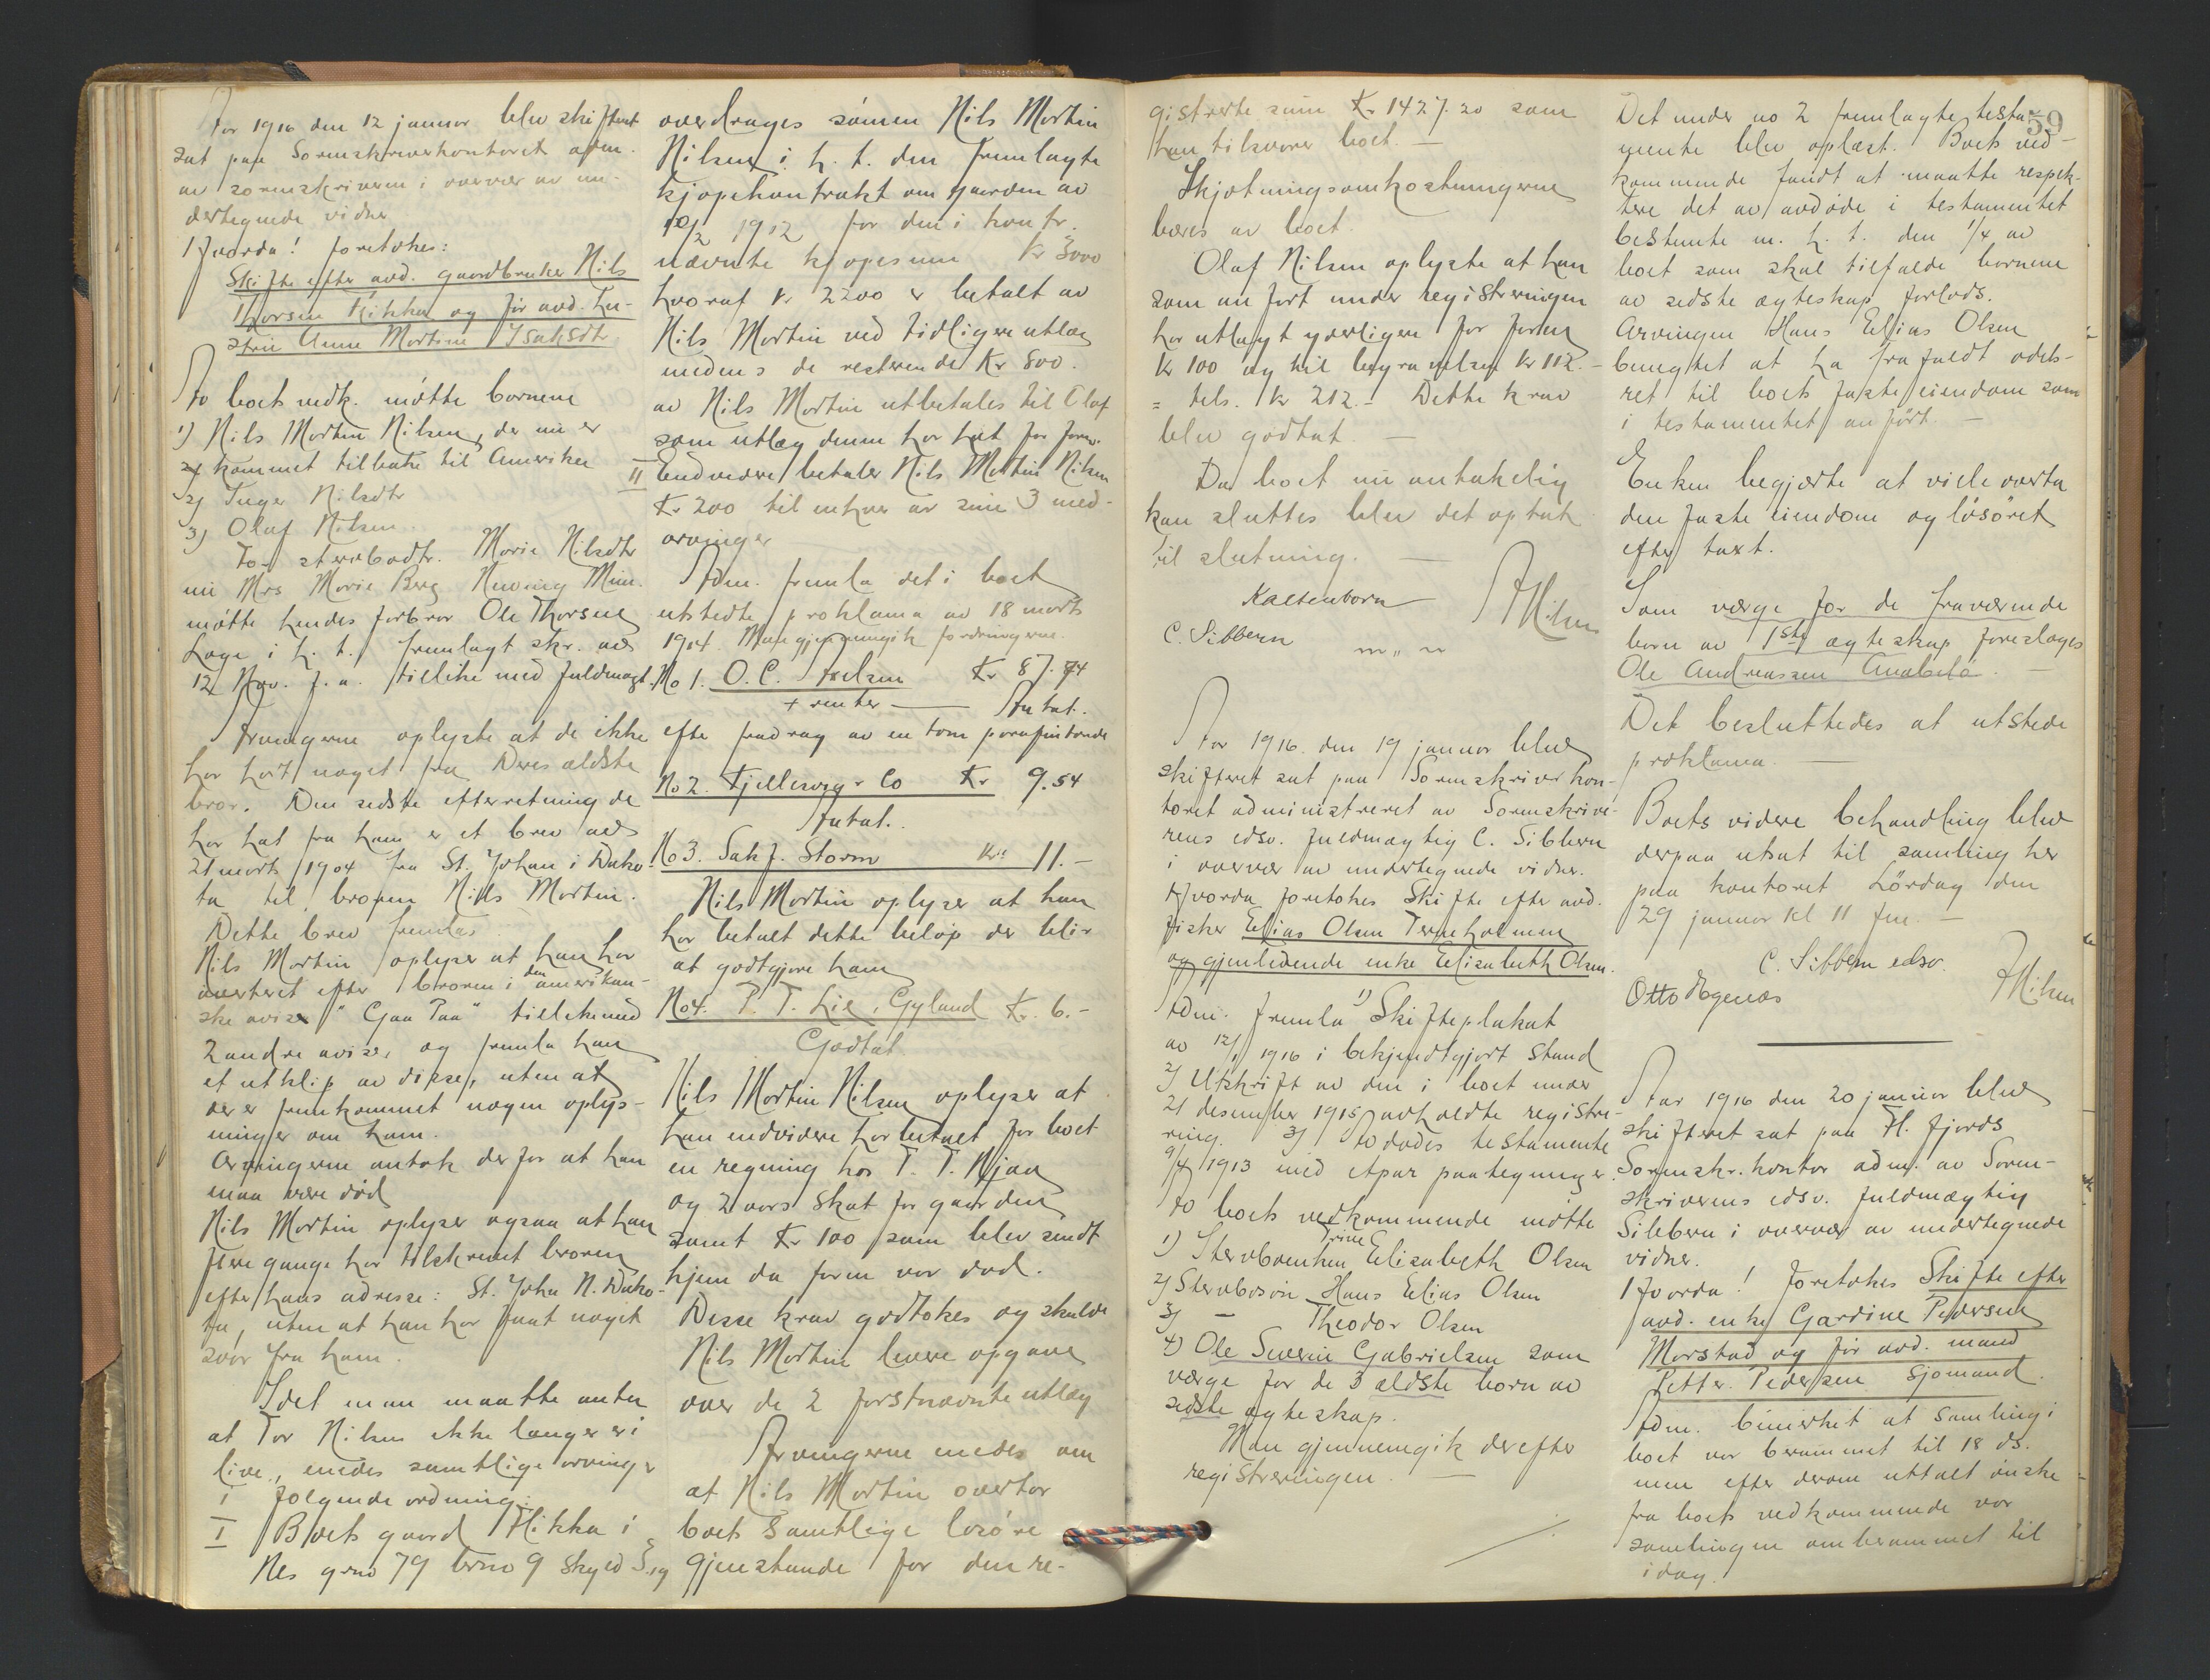 Aar 1916 den 12 januar blev skifteret
sat paa Sorenskriverkontoret adm.
av sorenskriveren i overvær av un-
dertegnede vidner
Hvorda! foretokes:
Skifte efter avd. gaardbruker Nils
Thorsen Hikka og før avd. hu-
stru Anne Martine Isaksdtr
Av boets vedk. møtte børnene
1) Nils Martin Nilsen, der nu er
kommet tilbake til Amerika
2) Inger Nilsdtr
3) Olaf Nilsen
For stervbodtr. Marie Nilsdtr
nu Mrs Marie Berg Minn.
møtte hendes farbror Ole Thorsen
Loge i h. t. fremlagt skr. av
12 Nov. f. a. tillike med fuldmagt.
Arvingerne oplyste at de ikke
har hørt noget fra Deres ældste
bror. Den sidste efterretning de
har hat fra ham er et brev av
21 marts 1904 fra St. John i Dako-
ta til broren Nils Martin.
Dette brev fremlas
Nils Martin oplyser at han har
averteret efter broren i den amerikan-
ske avise "Gaa Paa" tillikemed
2 andre aviser og fremla han
et utklip av disse, uten at
der er fremkommet nogen oplys-
ninger om ham.
Arvingerne antok derfor at han
maa være død
Nils Martin oplyser ogsaa at han
flere gange har tilskrevet broren
efter hans adresse: St. John N. Dako-
ta, uten at han har faat noget
svar fra ham.
Idet man maatte anta
at Tor Nilsen ikke længer er i
live, enedes samtlige arvinger
i følgende ordning:
I Boets gaard Hikka i
Nes grno 79 brno 9 skyld
overdrages sønnen Nils Martin
Nilsen i h. t. den fremlagte
kjøpekontrakt om gaarden av
10/2 1912 for den i kontr.
nævnte kjøpesum Kr 3000
hvoraf kr 2200 er betalt av
Nils Martin ved tidligere utlæg
medens de resterende Kr 800.
av Nils Martin utbetales til Olaf
som utlæg denne har hat for foræ.
II Endvidere betaler Nils Martin Nilsen
Kr 200 til enhver av sine 3 med-
arvinger
Adm. fremla det i boet
utstedte proklama av 18 marts
1904. Man gjennemgik fordringerne.
No 1. O. C. Axelsen Kr 87.74
+ renter — Antat.
efter fradrag av en tom parafintønde
No 2. Kjellesvig & Co Kr 9.54
Antat.
No 3. Sakf. Storm Kr. 11.-
Nils Martin oplyser at han
har betalt dette beløp der blir
at godtgjøre ham
No 4. P. T. Lie, Gyland Kr. 6.-
Godtat
Nils Martin Nilsen oplyser at
han endvidere har betalt for boet
en regning hos T. T. Njaa
og 2 aars skat for gaarden
samt Kr 100 som blev sendt
hjem da faren var død.
Disse krav godtokes og skulde
Nils Martin levere opgave
over de 2 førstnævnte utlæg
Arvingerne enedes om
at Nils Martin overtar
boets samtlige løsøre
gjenstande for den re-
gistrerte sum Kr 1427.20 som
han tilsvarer boet. —
Skjøtningsomkostningerne
bæres av boet.
Olaf Nilsen oplyste at han
som anført under registreringen
har utlagt yderligere for faren
kr 100 og til begravelsen kr 112.-
= tils. kr 212.- Dette krav
blev godtat. —
Da boet nu antakelig
kan sluttes blev det optat
til slutning. —
Kaltenborn
C. Sibbern
Aar 1916. den 19 januar blev
skifteret sat paa Sorenskriverkon-
toret administreret av Sorenskrive-
rens edsv. fuldmægtig C. Sibbern
i overvær av undertegnede vidner.
Hvorda foretokes Skifte efter avd.
fisker Elias Olsen Terneholmen
og gjenlevende enke Elisabeth Olsen.
Adm. fremla 1) Skifteplakat
av 12/1 1916 i bekjendtgjort stand
2) Utskrift av den i boet under
21 desember 1915 avholdte registre-
ring. 3) Avdødes testamente
9/4 1913 med et par paategninger.
Av boets vedkommende møtte
1) Stervboenken Trine Elisabeth Olsen
2) Stervbosøn Hans Elias Olsen
3) - Theodor Olsen
4) Ole Severin Gabrielsen som
værge for de 3 ældste børn av
sidste egteskap.
Man gjennemgik derefter
registreringen. —
59
Det under no 2 fremlagte testa-
mente blev oplæst. Boets ved-
kommende fandt at maatte respek-
tere det av avdøde i testamentet
bestemte m. h. t. den 1/4 av
boet som skal tilfalde børnene
av sidste egteskap forlods.
Arvingen Hans Elias Olsen
benegtet at ha frafaldt odels-
ret til boets faste eiendom som
i testamentet anført. —
Enken begjærte at ville overta
den faste eiendom og løsøret
efter taxt.
Som værge for de fraværende
børn av 1ste egteskap foreslages
Ole Andreassen Anabelø. —
Det besluttedes at utstede
proklama. —
Boets videre behandling blev
derpaa utsat til samling her
paa kontoret Lørdag den
29 januar kl 11 fm. —
C. Sibbern edsv.
Otto Egenæs
Aar 1916 den 20 januar blev
skifteret sat paa Fl. fjords
Sorenskr. kontor adm. av Soren-
skriverens edsv. fuldmægtig
Sibbern i overvær av undertegnede
vidner.
Hvorda! foretokes Skifte efter
avd. enke Gardine Pedersen
Marstad og før avd. mand
Petter Pedersen sjømand.
Adm. bemerket at samling i
boet var berammet til 18 ds.
men efter derom uttalt ønske
fra boets vedkommende var
samlingen omberammet til
idag.